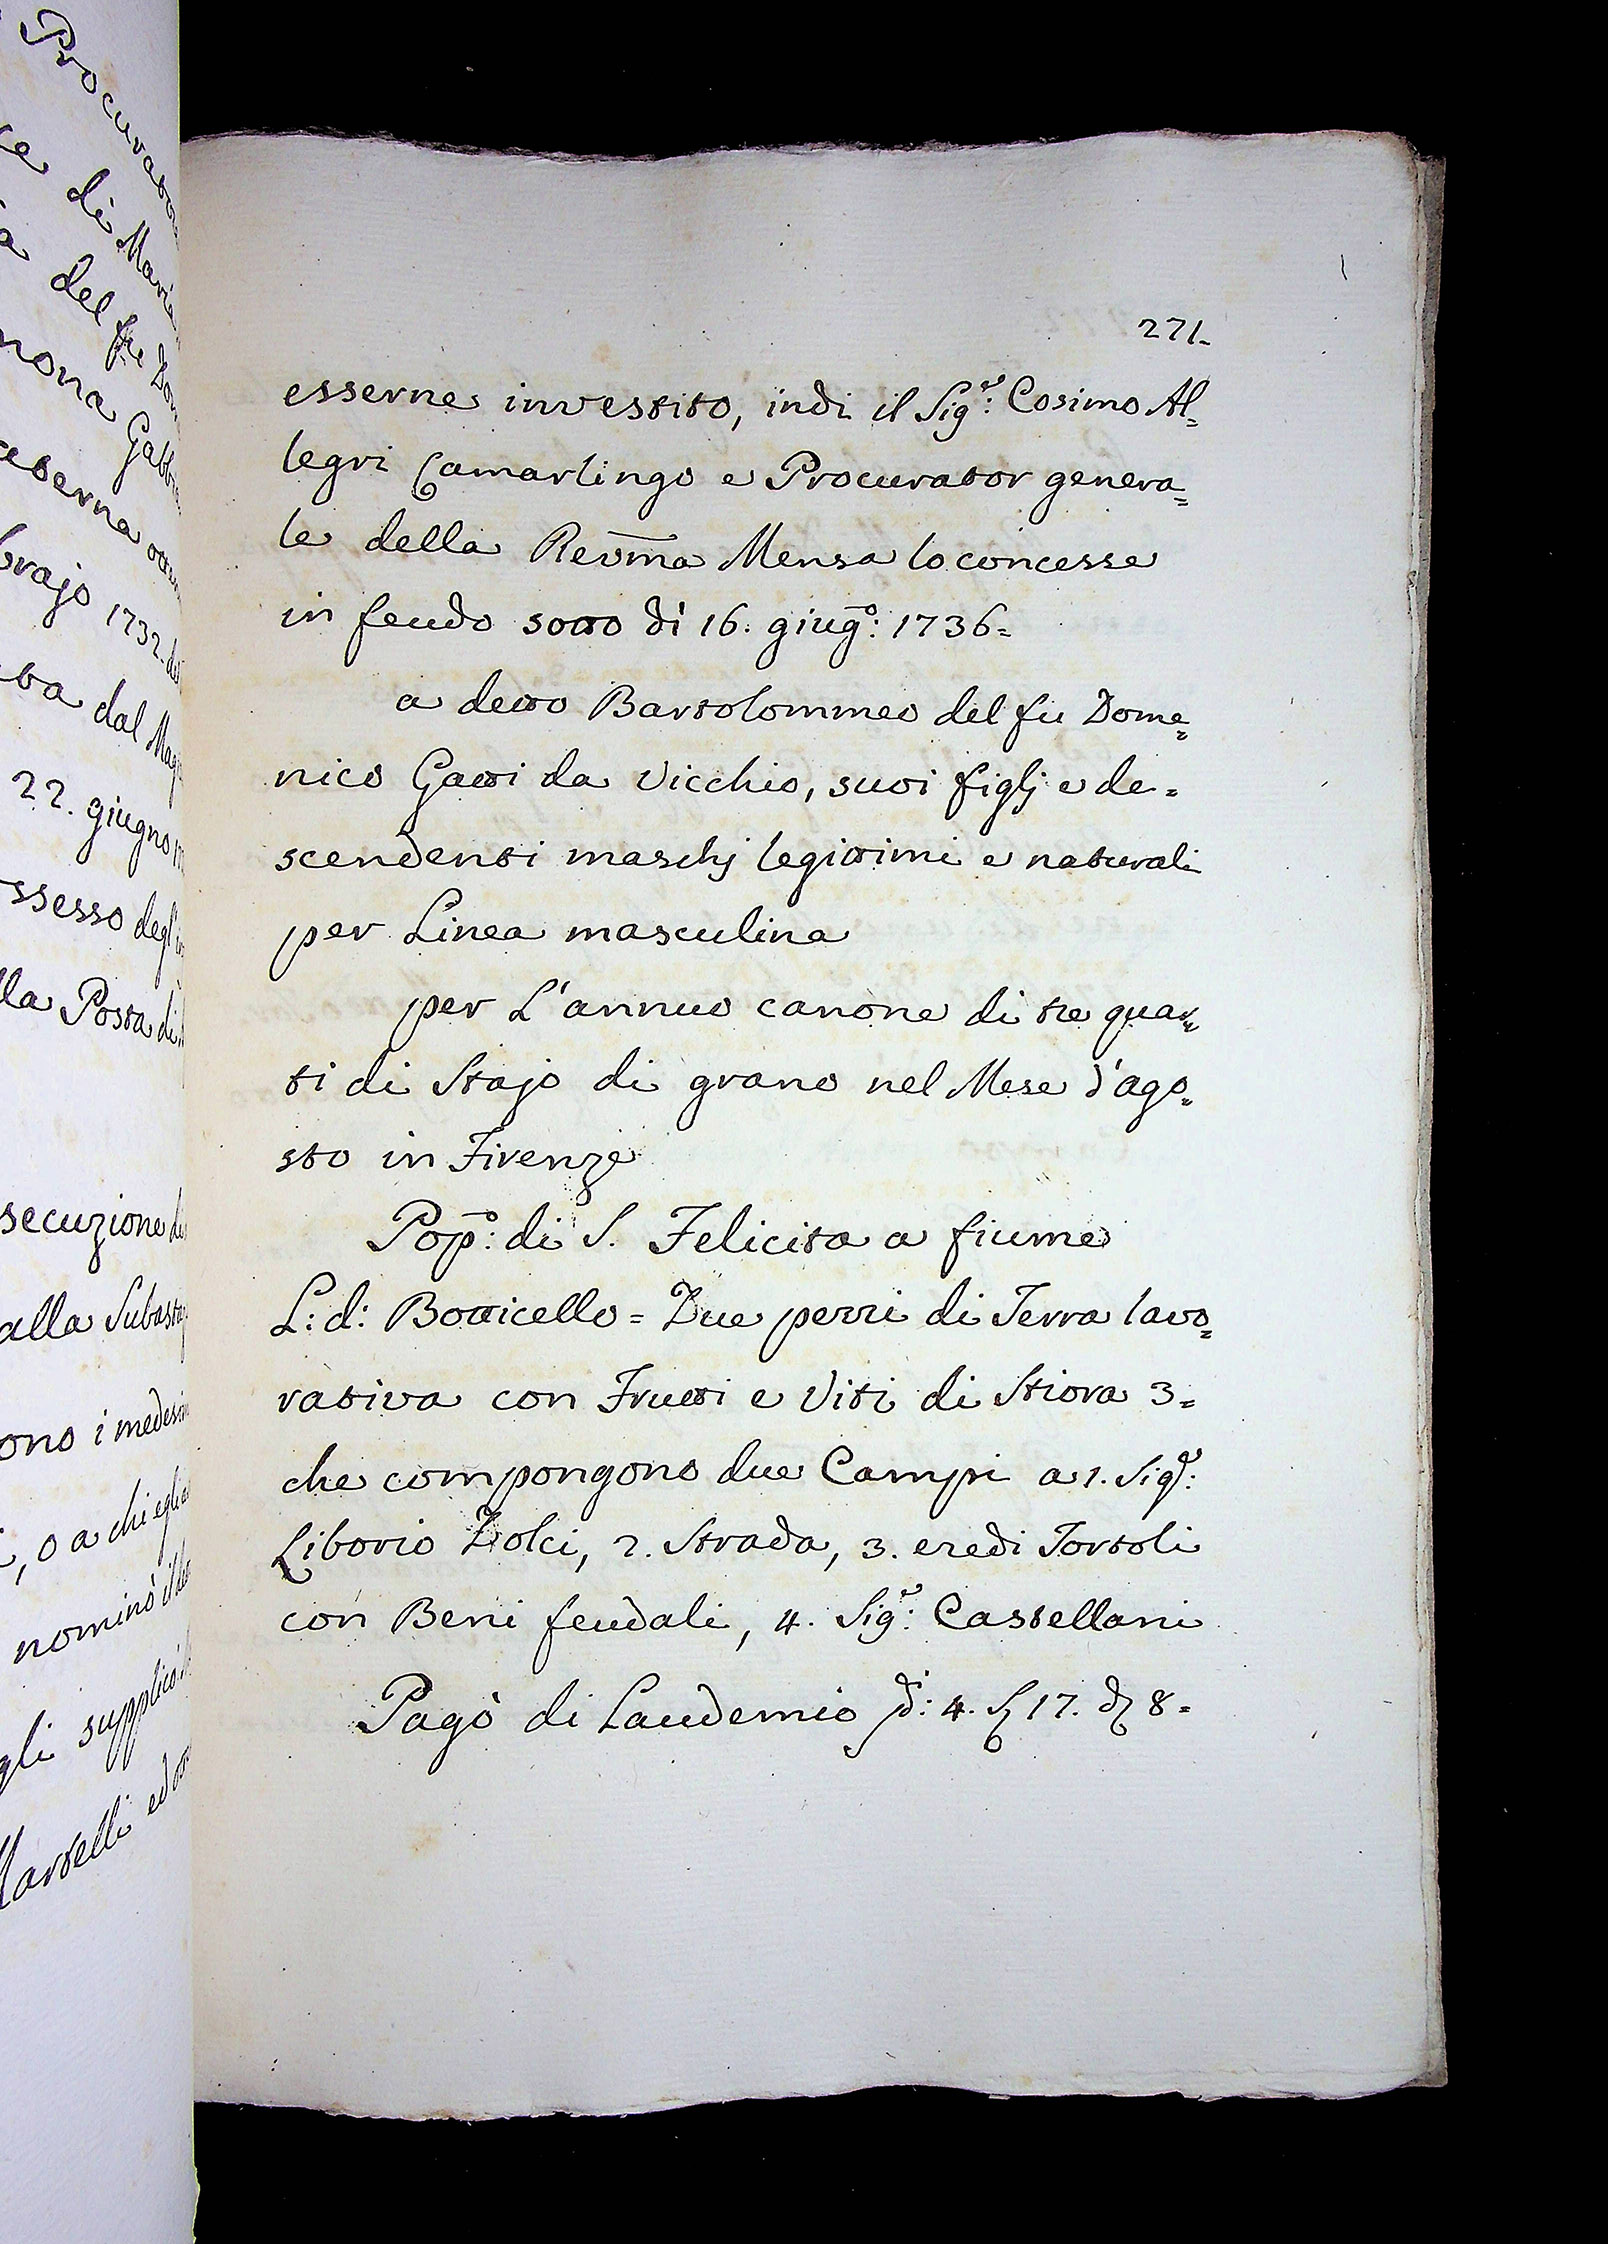 271.
esserne investito, indi il Sig.r: Cosimo Al=
legri Camarlingo e Procurator genera=
le della Revma Mensa lo concesse
in feudo sotto dì 16. giug.o: 1736=
a detto Bartolommeo del fu Dome=
nico Gatti da Vicchio, suoi figlj e de=
scendenti maschj legittimi e naturali
per Linea masculina
per L'annuo canone di tre quar=
ti di Stajo di grano nel Mese d'ago=
sto in Firenze
Pop.o: di S. Felicita a fiume
L: d: Botticello = Due pezzi di Terra lavo=
rativa con Frutti e Viti di Stiora 3=
che compongono due Campi a 1. Sig.r:
Liborio Dolci, 2. Strada, 3. eredi Tortoli
con Beni feudali, 4. Sig.r: Castellani
Pagò di Laudemio 4. 17. 8=
Procurator
di Maria
del fu Dom
mona Gabbr
brajo 1732.
dal Mag
22. giugno
ssesso degl'
lla Posta di
secuzione
alla Subasta
ono i medesim
, o a chi egli
nominò il
gli supplicò
Martelli ed